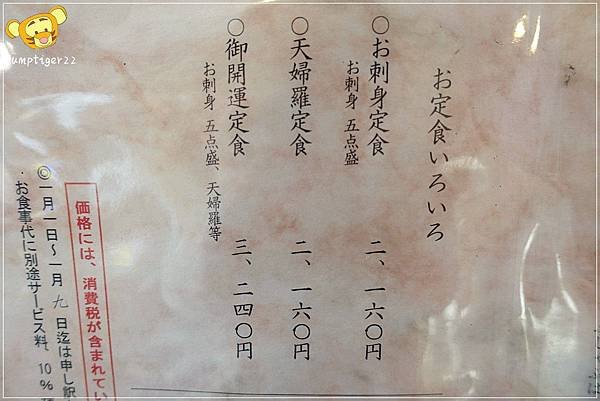 お定食いろいろ
○お刺身定食 二、一六〇円
お刺身 五点盛
○天婦羅定食 二、一六〇円
○御開運定食 三、二四〇円
お刺身 五点盛、天婦羅等
価格には、消費税が含まれてい
◎一月一日〜一月九日迄は申し訳
・お食事代に別途サービス料、10%
umptiger22